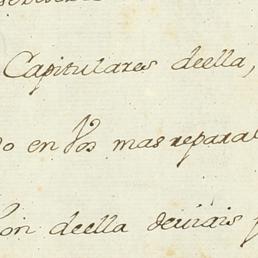 Capitulares deella,
o en Vos mas repara
on deella deviais